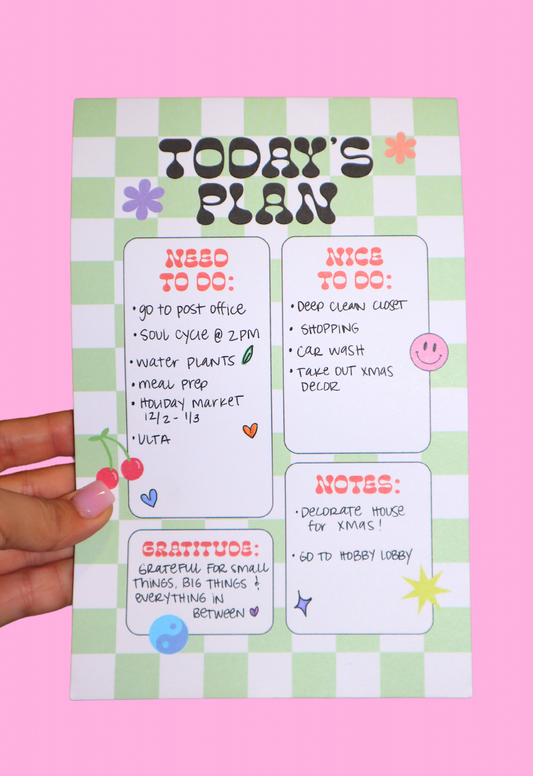 TODAY'S
PLAN
NEED
TO DO:
• go to post office
• Soul Cycle @ 2PM
• water plants
• meal prep
• Holiday Market
12/2 - 1/3
• ULTA
NICE
TO DO:
• Deep Clean Closet
• Shopping
• Car wash
• Take out Xmas
Decor
NOTES:
• Decorate House
for Xmas!
• Go to Hobby Lobby
GRATITUDE:
Grateful for small
things, big things &
everything in
between